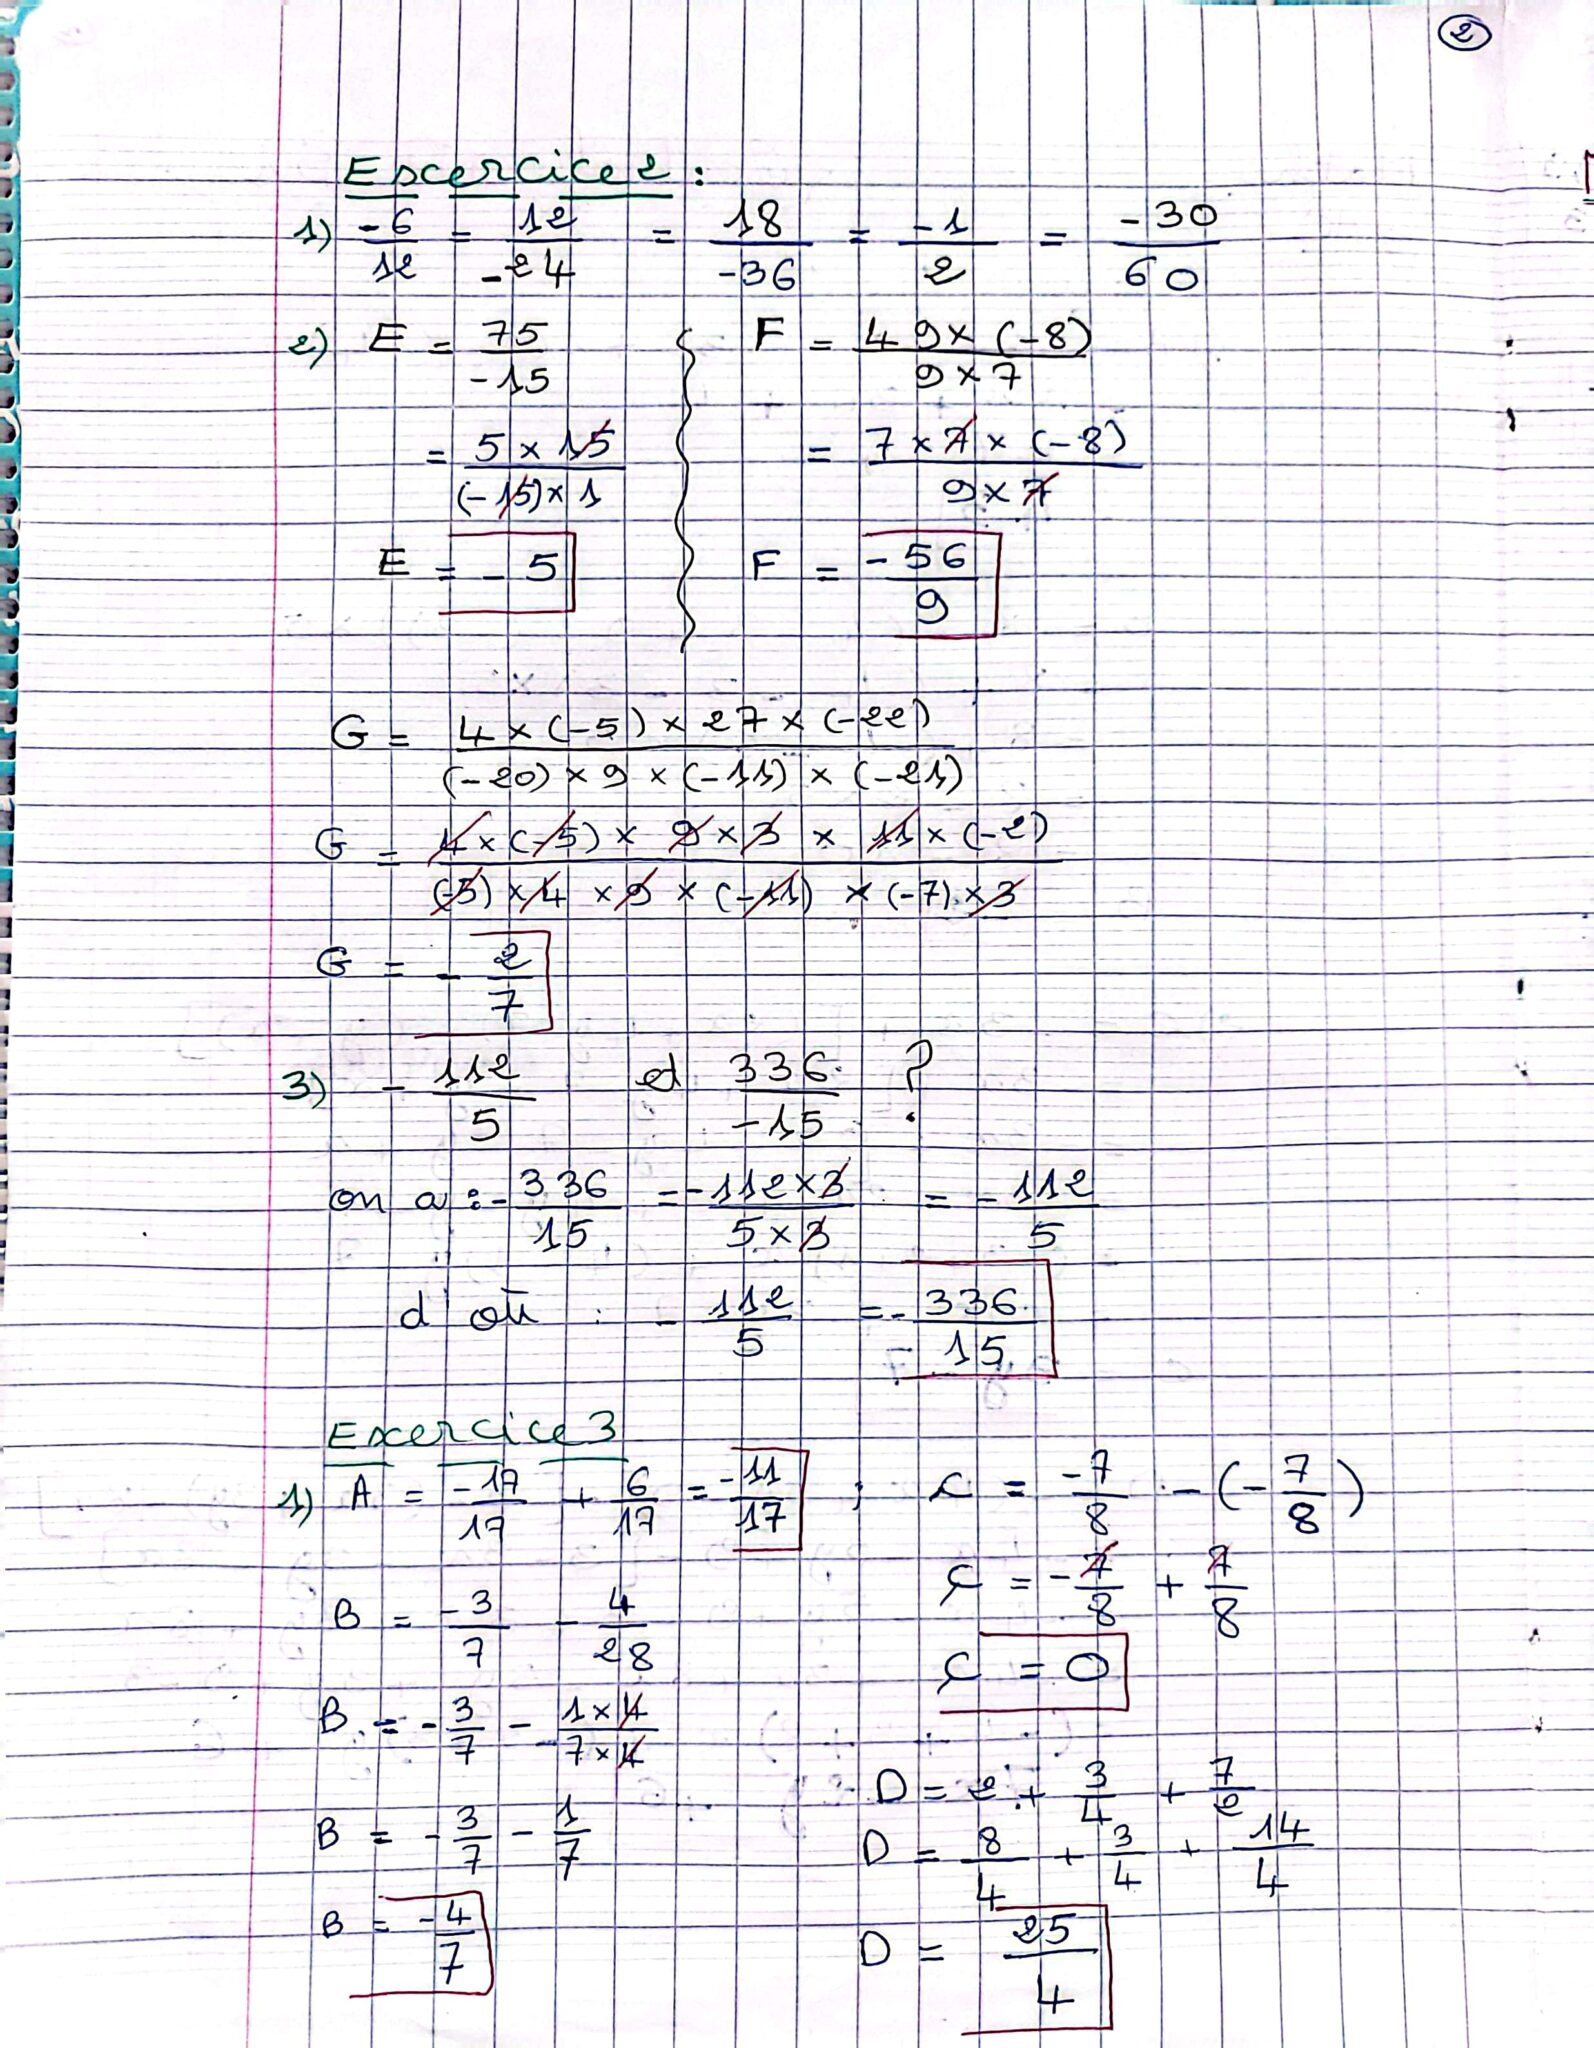 2
Excercice 2 :
1) -6/12 = 12/-24 = 18/-36 = -1/2 = -30/60
2) E = 75/-15
= 5 × 15/(-15) × 1
E = - 5
F = 49 × (-8)/9 × 7
= 7 × 7 × (-8)/9 × 7
F = -56/9
G = 4 × (-5) × 27 × (-22)/(-20) × 9 × (-11) × (-21)
G = 4 × (-5) × 9 × 3 × 11 × (-2)/(-5) × 4 × 9 × (-11) × (-7) × 3
G = - 2/7
3) - 112/5 et 336/-15 ?
on a : - 336/15 = - 112 × 3/5 × 3 = - 112/5
d où : - 112/5 = - 336/15
Exercice 3
1) A = -17/17 + 6/17 = -11/17 ;
B = -3/7 - 4/28
B = - 3/7 - 1 × 4/7 × 4
B = - 3/7 - 1/7
B = - 4/7
C = -7/8 - (- 7/8)
C = - 7/8 + 7/8
C = 0
D = 2 + 3/4 + 7/2
D = 8/4 + 3/4 + 14/4
D = 25/4